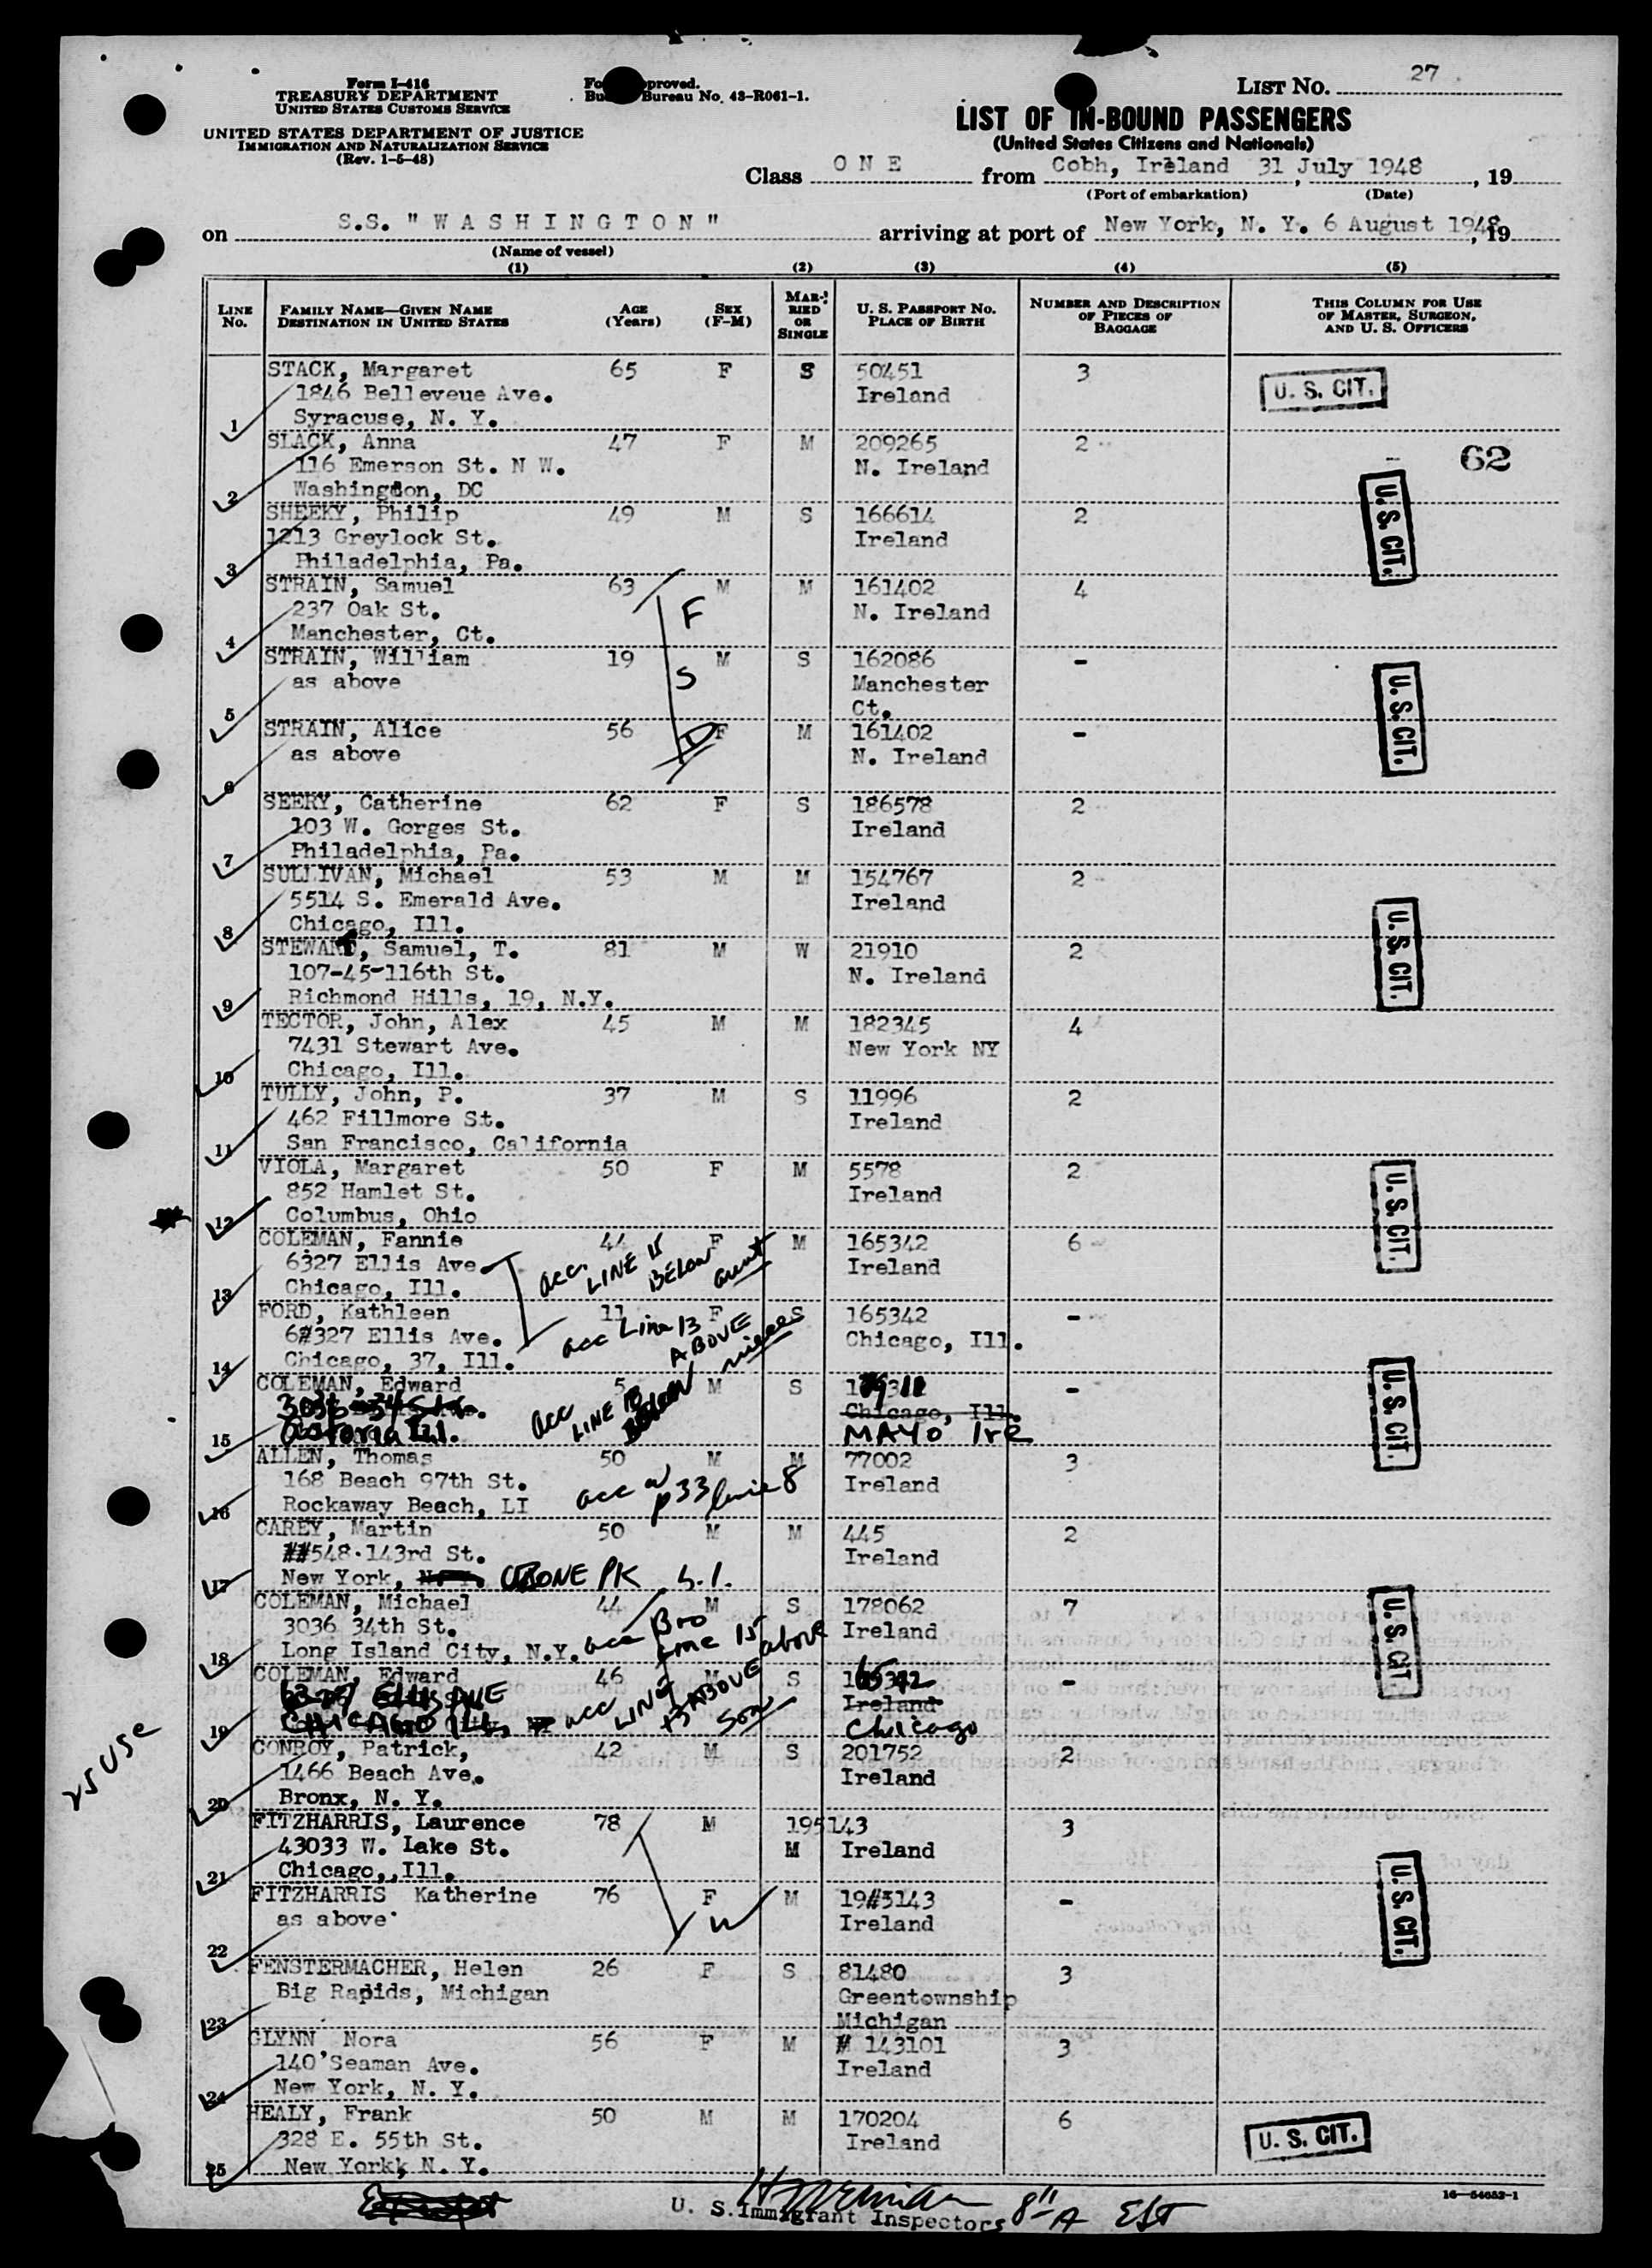 Form I-416
TREASURY DEPARTMENT
UNITED STATES CUSTOMS SERVICE
UNITED STATES DEPARTMENT OF JUSTICE
IMMIGRATION AND NATURALIZATION SERVICE
(Rev. 1-5-48)
proved.
Bureau No. 43-R061-1.
LIST NO. 27
LIST OF IN-BOUND PASSENGERS
(United States Citizens and Nationals)
Class O N E from Cobh, Ireland 31 July 1948, 19
(Port of embarkation) (Date)
on S.S. "WASHINGTON" arriving at port of New York, N. Y. 6 August 1948, 19
(Name of vessel)
(1) (2) (3) (4) (5)
LINE No. FAMILY NAME—GIVEN NAME DESTINATION IN UNITED STATES AGE (Years) SEX (F-M) MARRIED OR SINGLE U. S. PASSPORT NO. PLACE OF BIRTH NUMBER AND DESCRIPTION OF PIECES OF BAGGAGE THIS COLUMN FOR USE OF MASTER, SURGEON, AND U. S. OFFICERS
STACK, Margaret 65 F S 50451 3
1846 Belleveue Ave. Ireland U. S. CIT.
1 Syracuse, N. Y.
SLACK, Anna 47 F M 209265 2
116 Emerson St. N W. N. Ireland 62
2 Washington, DC
SHEEKY, Philip 49 M S 166614 2 U. S. CIT.
1213 Greylock St. Ireland
3 Philadelphia, Pa.
STRAIN, Samuel 63 M M 161402 4
237 Oak St. F N. Ireland
4 Manchester, Ct.
STRAIN, William 19 M S 162086 -
as above S Manchester U. S. CIT.
5 Ct.
STRAIN, Alice 56 F M 161402 -
as above N. Ireland
6
SEERY, Catherine 62 F S 186578 2
103 W. Gorges St. Ireland
7 Philadelphia, Pa.
SULLIVAN, Michael 53 M M 154767 2
5514 S. Emerald Ave. Ireland U. S. CIT.
8 Chicago, Ill.
STEWART, Samuel, T. 81 M W 21910 2
107-45-116th St. N. Ireland
9 Richmond Hills, 19, N.Y.
TECTOR, John, Alex 45 M M 182345 4
7431 Stewart Ave. New York NY
10 Chicago, Ill.
TULLY, John, P. 37 M S 11996 2
462 Fillmore St. Ireland
11 San Francisco, California
VIOLA, Margaret 50 F M 5578 2 U. S. CIT.
852 Hamlet St. Ireland
12 Columbus, Ohio
COLEMAN, Fannie 44 F M 165342 6
6327 Ellis Ave. acc. LINE 15 BELOW aunt Ireland
13 Chicago, Ill.
FORD, Kathleen 11 F S 165342 -
6#327 Ellis Ave. acc Line 13 ABOVE nieces Chicago, Ill.
14 Chicago, 37, Ill.
COLEMAN, Edward 5 M S - U. S. CIT.
3036 34 St. acc LINE 18 BELOW Chicago, Ill.
15 Astoria L.I. MAYO Ire
ALLEN, Thomas 50 M M 77002 3
168 Beach 97th St. acc w p33 line 8 Ireland
16 Rockaway Beach, LI
CAREY, Martin 50 M M 445 2
##548-143rd St. Ireland
17 New York, N. Y. OZONE PK L.I.
COLEMAN, Michael 44 M S 178062 7 U. S. CIT
3036 34th St. Bro Ireland
18 Long Island City, N.Y. acc Line 15 above
COLEMAN, Edward 46 M S -
6327 ELLIS AVE acc LINE 13 ABOVE Son Ireland
19 CHICAGO ILL. Chicago
CONROY, Patrick, 42 M S 201752 2
1466 Beach Ave. Ireland
20 Bronx, N. Y.
25 USC
FITZHARRIS, Laurence 78 M 195143 3
43033 W. Lake St. M Ireland
21 Chicago,,Ill. U. S. CIT.
FITZHARRIS Katherine 76 F M 19#5143 -
as above W Ireland
22
FENSTERMACHER, Helen 26 F S 81480 3
Big Rapids, Michigan Greentownship
23 Michigan
GLYNN Nora 56 F M # 143101 3
140 Seaman Ave. Ireland
24 New York, N. Y.
HEALY, Frank 50 M M 170204 6
328 E. 55th St. Ireland U. S. CIT.
25 New York, N. Y.
16-54652-1
U. S. Immigrant Inspectors 8" A EST